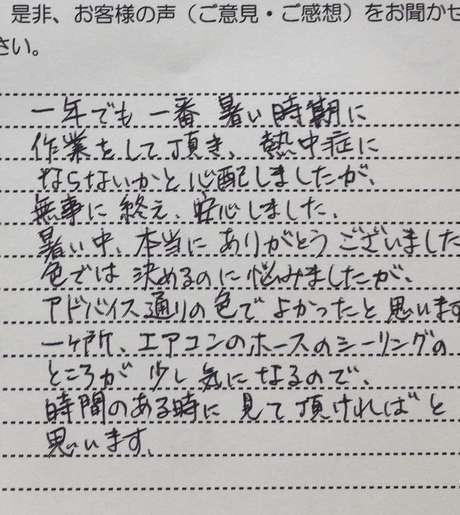 是非、お客様の声（ご意見・ご感想）をお聞かせ
さい。
一年でも一番暑い時期に
作業をして頂き、熱中症に
ならないかと心配しましたが、
無事に終え、安心しました。
暑い中、本当にありがとうございました
色では決めるのに悩みましたが、
アドバイス通りの色でよかったと思います
一ヶ所、エアコンのホースのシーリングの
ところが少し気になるので、
時間のある時に見て頂ければと
思います。